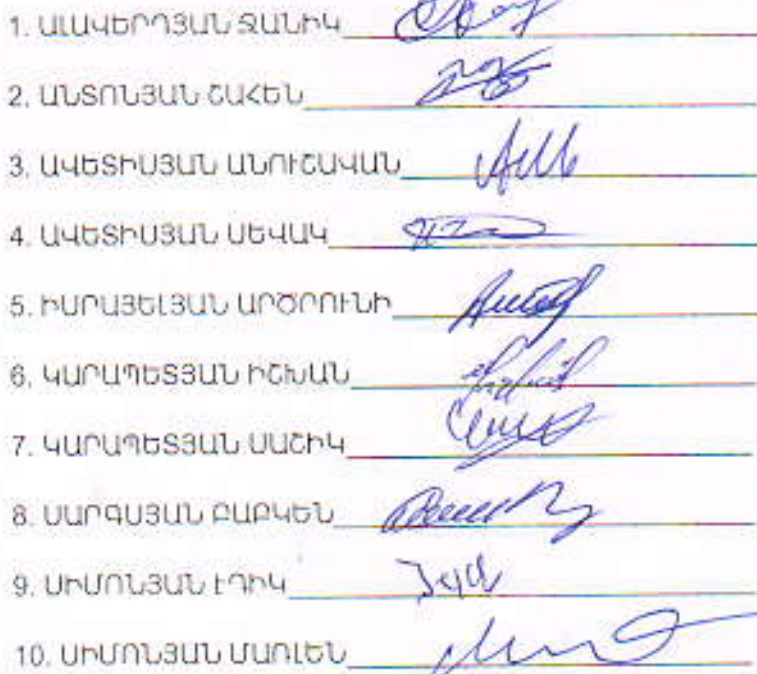 1. ԱԼԱՎԵՐԴՅԱՆ ՋԱՆԻԿ
2. ԱՆՏՈՆՅԱՆ ՇԱՀԵՆ
3. ԱՎԵՏԻՍՅԱՆ ԱՆՈՒՇԱՎԱՆ
4. ԱՎԵՏԻՍՅԱՆ ՍԵՎԱԿ
5. ԻՍՐԱՅԵԼՅԱՆ ԱՐԾՐՈՒՆԻ
6. ԿԱՐԱՊԵՏՅԱՆ ԻՇԽԱՆ
7. ԿԱՐԱՊԵՏՅԱՆ ՍԱՇԻԿ
8. ՍԱՐԳՍՅԱՆ ԲԱԲԿԵՆ
9. ՍԻՄՈՆՅԱՆ ԷԴԻԿ
10. ՍԻՄՈՆՅԱՆ ՄԱՌԼԵՆ